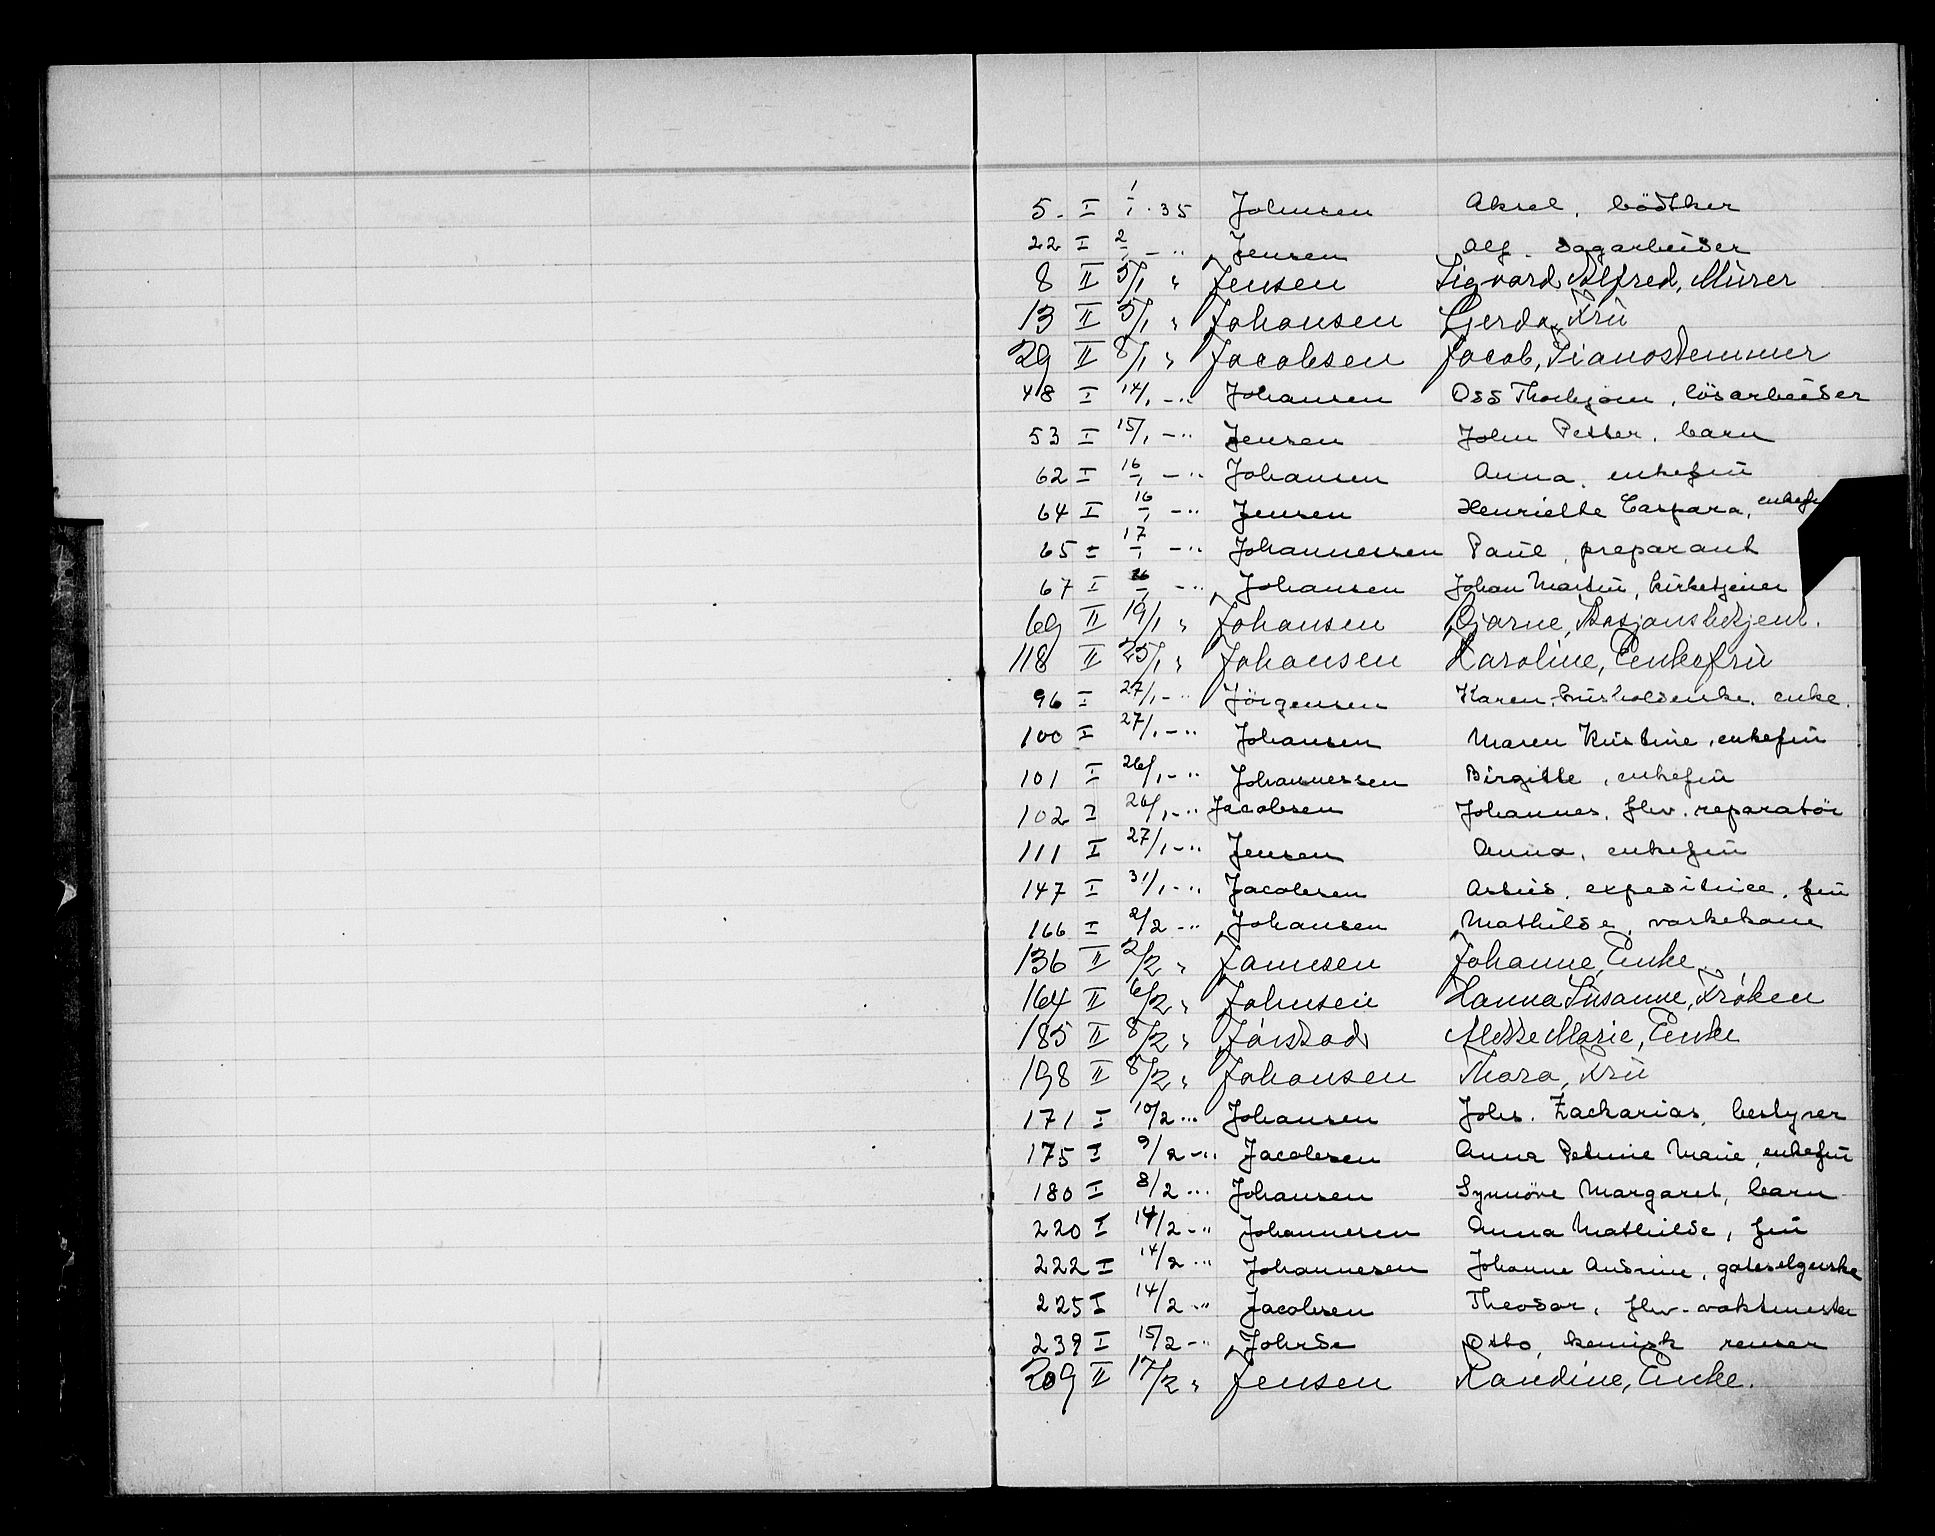 5. I 1/1 . 35 Johnsen Aksel, bödtker
22 I 2/1 - " Jensen Alf. sagarbeider
8 II 5/1 " Jensen Sigvard Alfred, Murer
13 II 5/1 " Johansen Gerda, Frú
29 II 8/1 " Jacobsen Jacob, Pianostemmer
48 I 14/1 - " Johansen Odd Thorbjørn, lösarbeider
53 I 15/1 - " Jensen John Petter, barn
62 I 16/1 - " Johansen Anna, enkefrú
64 I 16/1 - " Jensen Henriette Caspara, enkefr
65 I 17/1 - " Johannessen Paul, preparant
67 I 16/1 - " Johansen Johan Martin, kirketjener
69 II 19/1 " Johansen Bjarne, Stasjonsbetjent.
118 II 25/1 " Johansen Karoline, Enkefrú
96 I 27/1 - " Jörgensen Karen, enke.
100 I 27/1 - " Johansen Maren Kristine, enkefrú
101 I 26/1 - " Johannessen Birgitte, enkefrú
102 I 26/1 - " Jacobsen Johannes, fhv. reparatör
111 I 27/1 - " Jensen Anna, enkefrú
147 I 31/1 - " Jacobsen Astrid, expeditrice, frú
166 I 2/2 - " Johansen Mathilde, vaskekone
136 II 2/2 " Jannsen Johanne, Enke
164 II 6/2 " Johnsen Hanna Susanne, Frøken
185 II 8/2 " Jørstad Mette Marie, Enke
198 II 8/2 " Johansen Thora, Frú
171 I 10/2 - " Johansen Johs. Zacharias, bestyrer
175 I 9/2 - " Jacobsen Anna Petrine Marie, enkefrú
180 I 8/2 - " Johansen Synnöve Margaret, barn
220 I 14/2 - " Johannesen Anna Mathilde, frú
222 I 14/2 - " Johannesen Johanne Andrine, gateselgerske
225 I 14/2 - " Jacobsen Theodor, fhv. vaktmester
239 I 15/2 - " Johrde Otto, kemisk renser
209 II 17/2 " Jensen Randine, Enke.